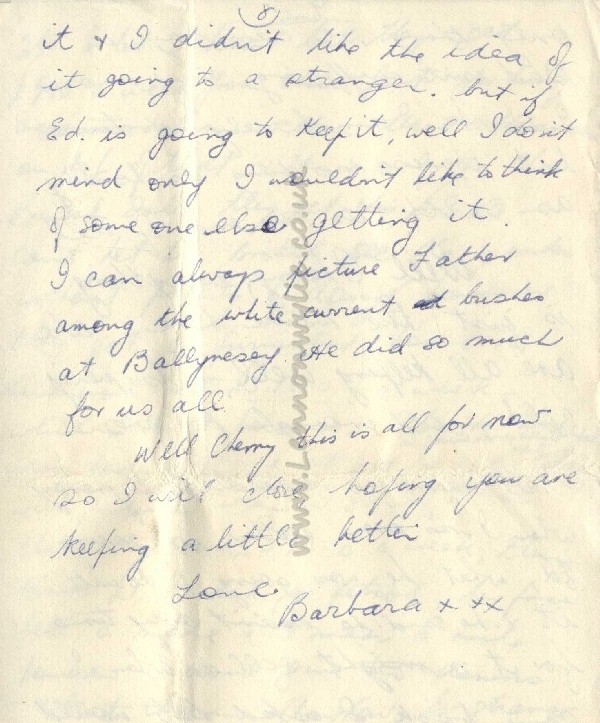 8
it & I didn't like the idea of
it going to a stranger. but if
Ed. is going to keep it, well I don't
mind only I wouldn't like to think
of some one else getting it.
I can always picture Father
among the white current bushes
at Ballynesey. He did so much
for us all.
Well Cherry this is all for now
so I will close hoping you are
keeping a little better
Love
Barbara x xx
www.Lennonwylie.co.uk